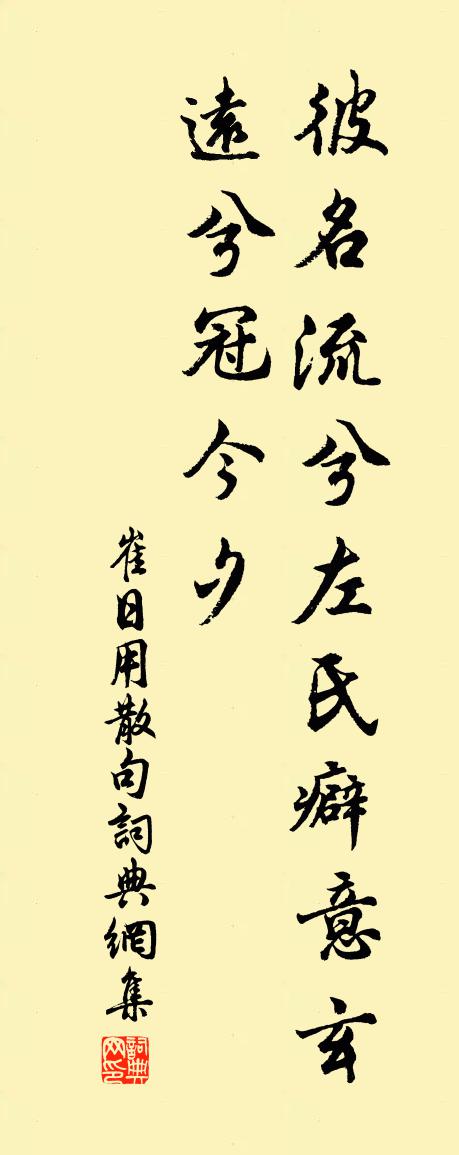 彼名流兮左氏癖意玄
遠兮冠今夕
崔日用散句詞典網集
詞典网印